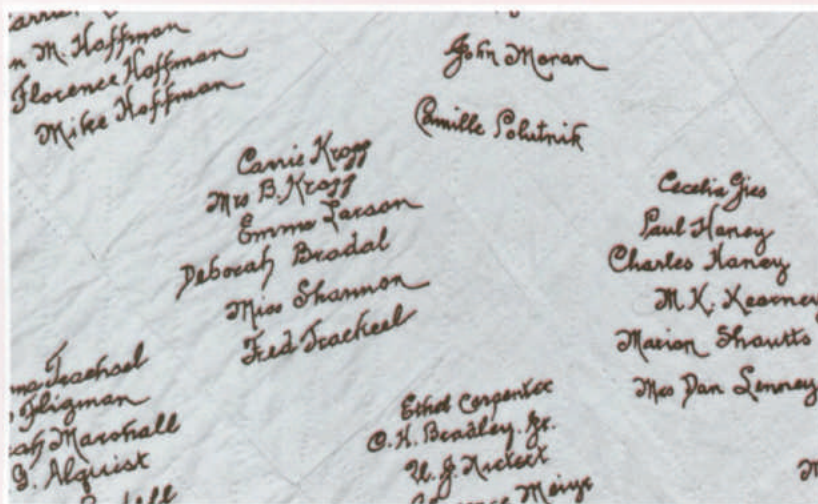 M. Hoffman
Florence Hoffman
Mike Hoffman
John Moran
Camille Polutnik
Carrie Krogg
Mrs B. Krogg
Emma Larson
Deborah Bradal
Miss Shannon
Fred Trackeel
Cecelia Gies
Paul Haney
Charles Haney
M. K. Kearney
Marion Shautts
Mrs Dan Lenney
Trachsel
Fligman
Marshall
G. Alquist
Ethel Carpenter
O. H. Bradley, Jr.
W. J. Rickert